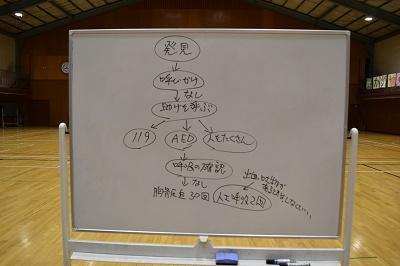 発見
呼びかけ
なし
助けを呼ぶ
119 AED 人をたくさん
呼吸の確認
なし
胸骨圧迫 30回
人工呼吸2回
出血、吐物が
あるときはしない…